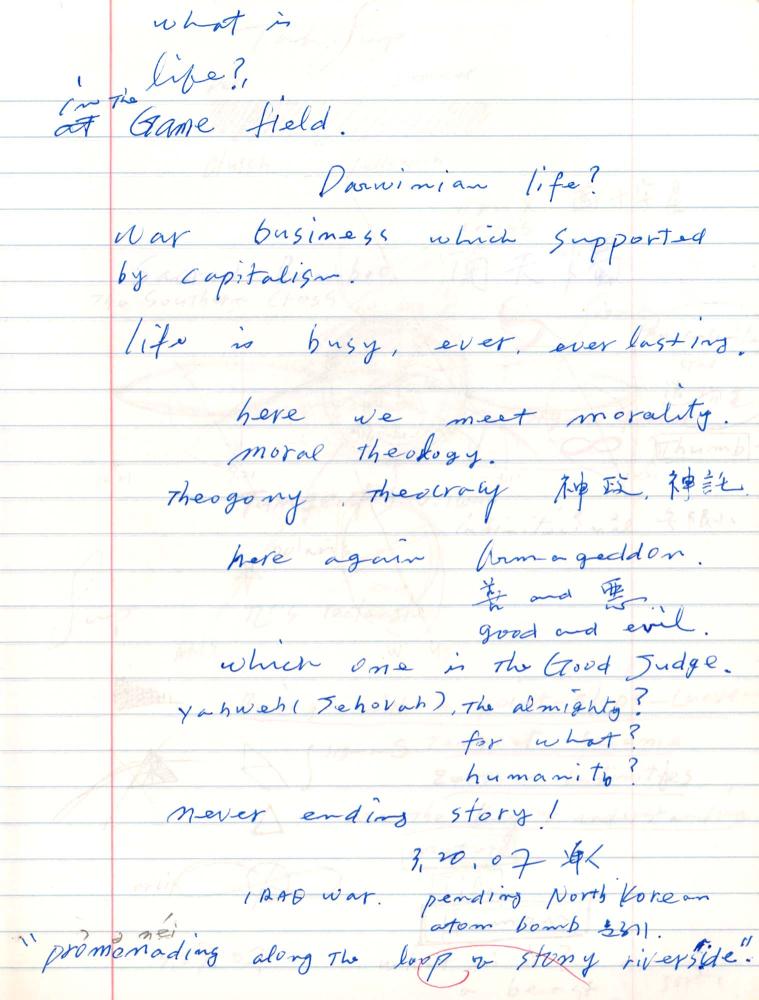 what is
life?,
in the
at Game field.
Darwinian life?
War business which supported
by capitalism.
life is busy, ever, ever lasting.
here we meet morality.
moral theology.
Theogony, theocracy 神政, 神託
here again Armageddon.
善 and 悪
good and evil.
which one is the Good Judge.
Yahweh (Jehovah), The almighty?
for what?
humanity?
never ending story!
3, 20, 07
IRAQ war. pending North Korean
atom bomb
nei
"promenading along the loop stony riverside".